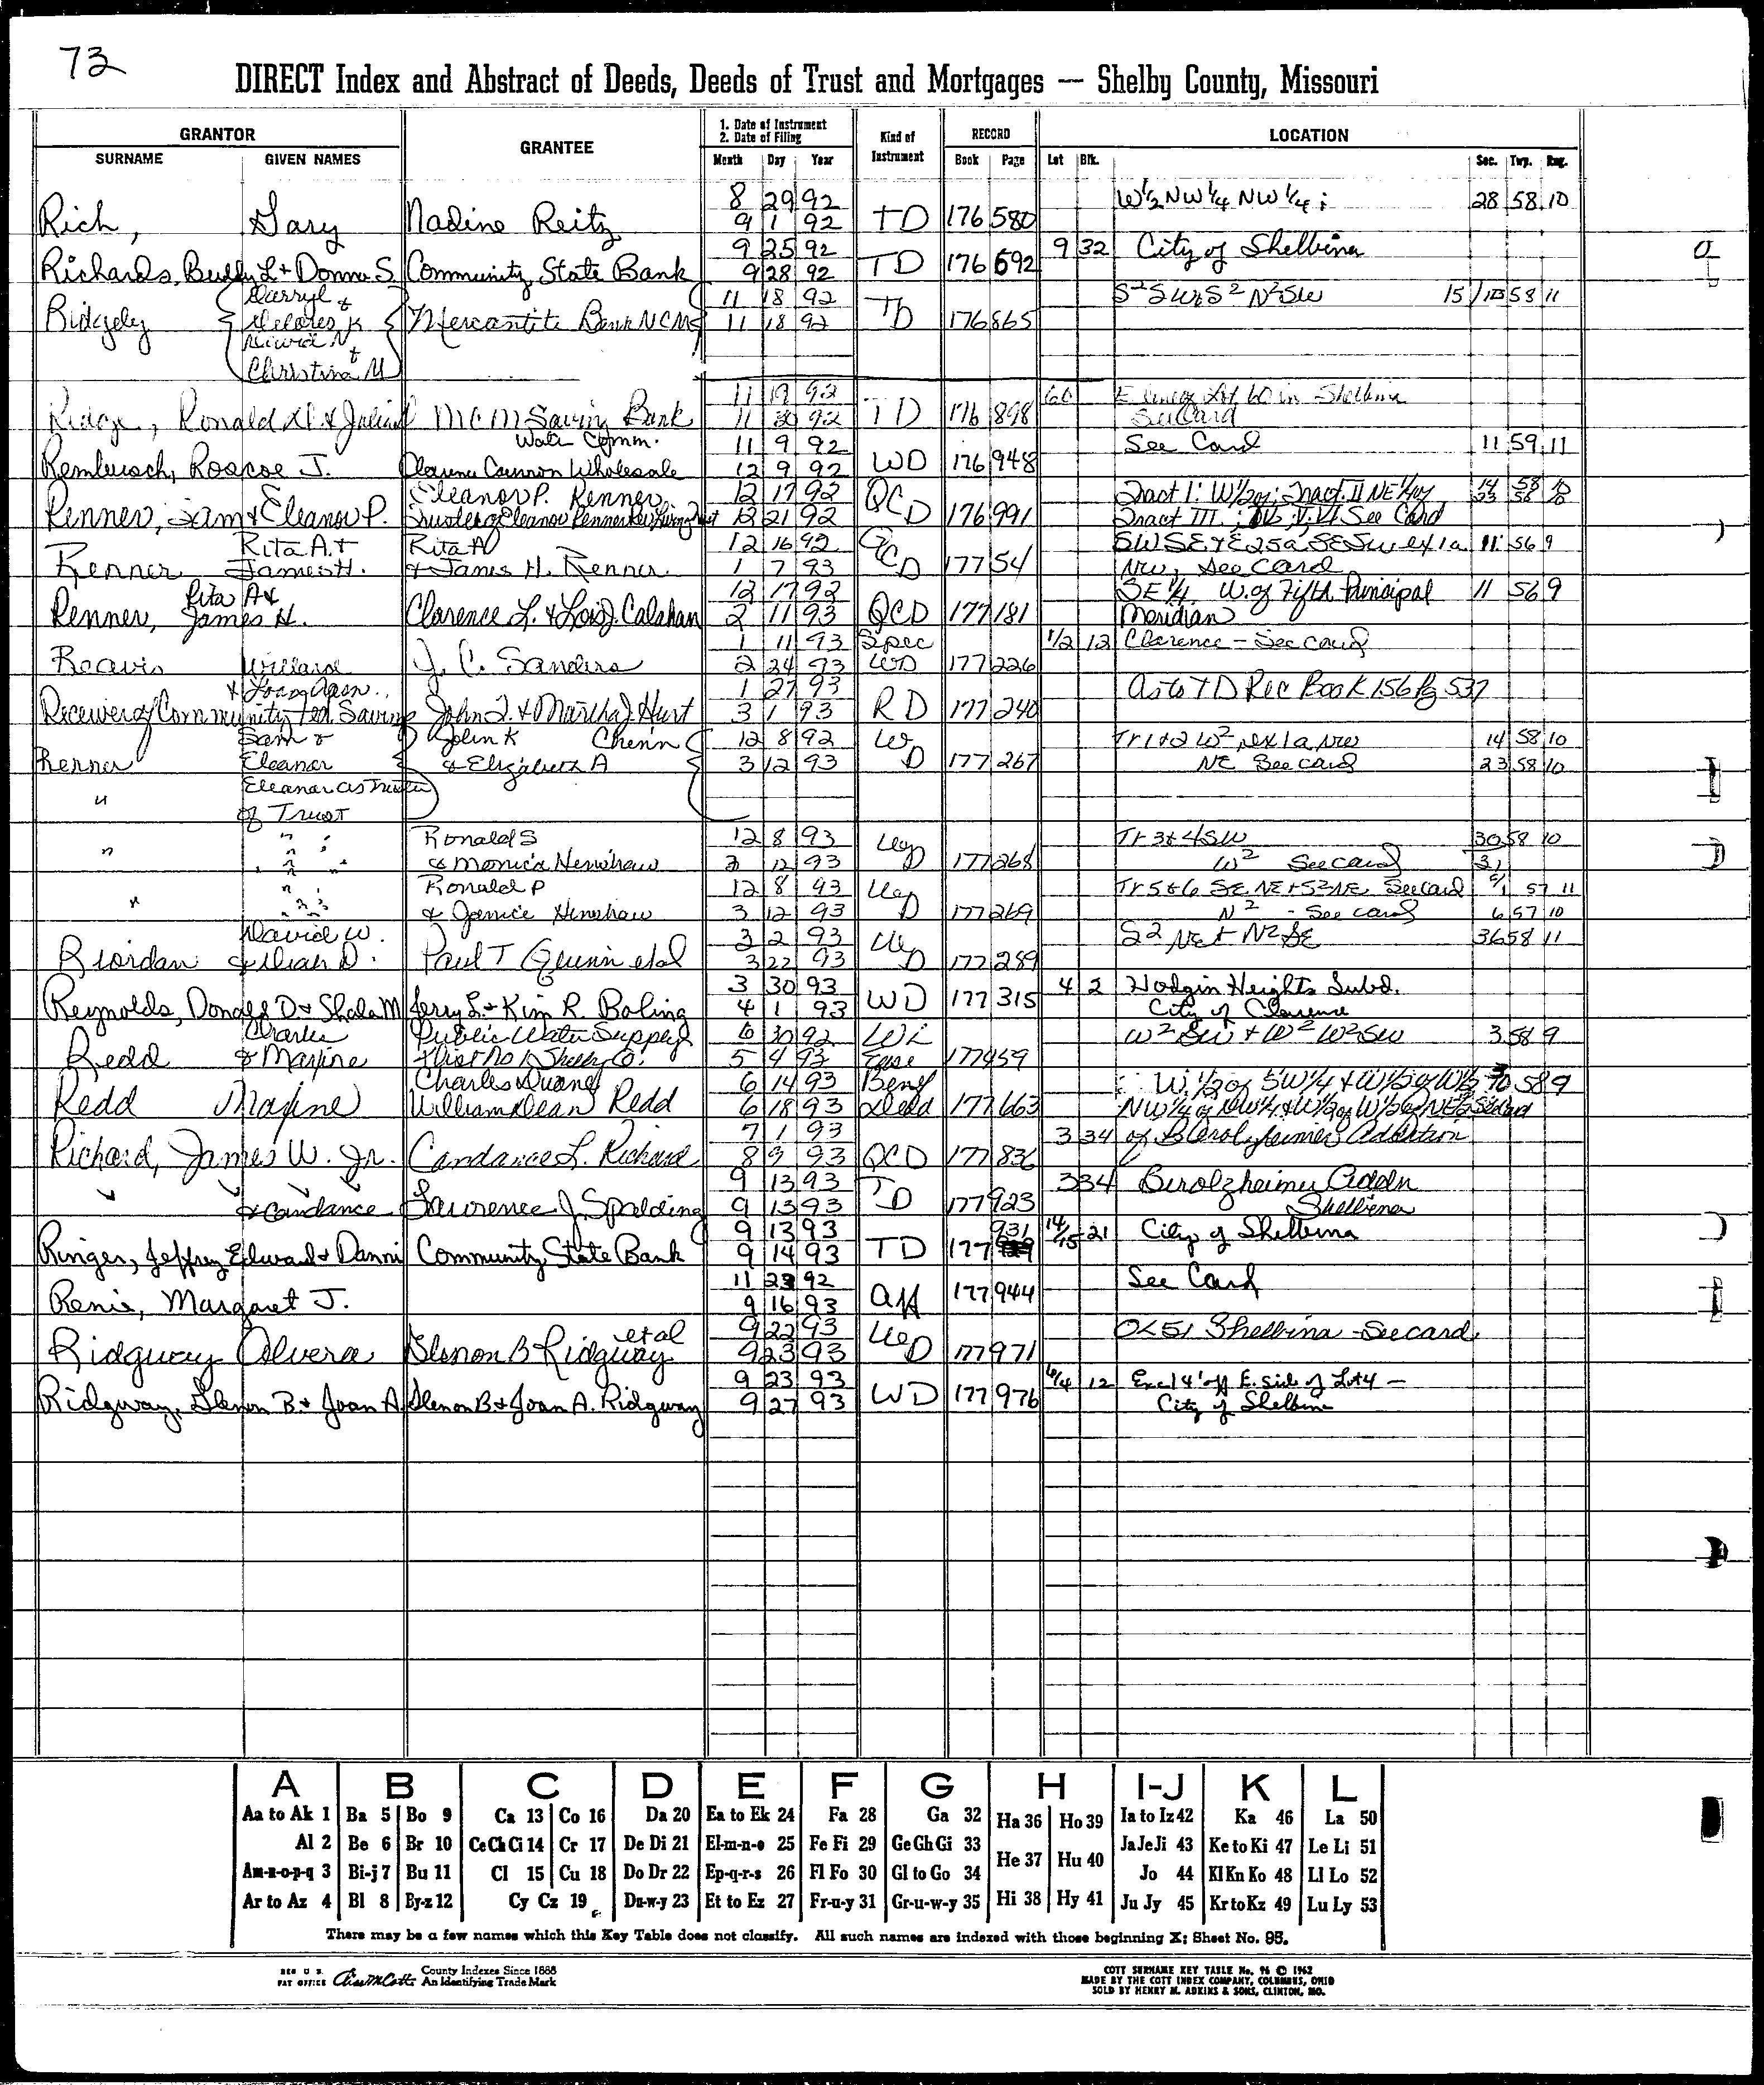 73
DIRECT Index and Abstract of Deeds, Deeds of Trust and Mortgages — Shelby County, Missouri
GRANTOR GRANTEE 1. Date of Instrument 2. Date of Filing Kind of Instrument RECORD LOCATION
SURNAME GIVEN NAMES Month Day Year Book Page Lot Blk. Sec. Twp. Rng.
8 29 92 W½ NW¼ NW¼; 28 58 10
Rich, Gary Nadine Reitz 9 1 92 TD 176 580
9 25 92 9 32 City of Shelbina
Richards, Billy L + Donna S. Community State Bank 9 28 92 TD 176 692
Darryl + 11 18 92 58 11
Ridgely Delores K Mercantile Bank NCMo 11 18 92 TD 176 865
Christina M
11 19 92 60 Lot 60 in Shelbina
Ridge, Ronald MCM Saving Bank 11 20 92 TD 176 898 See Card
Wate Comm. 11 9 92 See Card 11 59 11
Rembusch, Roscoe J. Clarence Cannon Wholesale 12 9 92 WD 176 948
Eleanor P. Renner, 12 17 92 QCD Tract I: W½ of; Tract II NE¼ of 14 58 10
Renner, Sam & Eleanor P. Trustee of Eleanor Renner 12 21 92 176 991 Tract III.; See Card 23 58 10
Rita A. + Rita A 12 16 92 SW SE + E 25a SE SW ex 1a 11 56 9
Renner James H. + James H. Renner 1 7 93 QCD 177 54 NW, See Card
Rita A + 12 17 92 SE¼ W. of Fifth Principal 11 56 9
Renner, James H. Clarence L. & Lois J. Calahan 2 11 93 QCD 177 181 Meridian
1 11 93 Spec 1/2 12 Clarence - See card
Reavis Willard J. C. Sanders 2 24 93 WD 177 226
+ Joan Ann 1 27 93 As to TD Rec Book 156 Pg 537
Receiver of Community Fed. Savings John I. & Martha J. Hurt 3 1 93 RD 177 240
Sam & John K Chenn 12 8 92 W Tr 1 + 2 W² ex 1a NW 14 58 10
Renner Eleanor & Elizabeth A 3 12 93 D 177 267 NE See card 23 58 10
" Eleanor as Trustee
of Trust
" " Ronald S 12 8 93 W Tr 3 & 4 SW 30 58 10
" & Monica Henshaw 3 12 93 D 177 268 W² See card 31
" " Ronald P 12 8 93 W Tr 5 & 6 SE NE + S² NE See card 57 11
" & Janice Henshaw 3 12 93 D 177 269 N² - See card 6 57 10
David W. 3 2 93 W S² NE + N² SE 36 58 11
Riordan Paul T Quinn etal 3 22 93 D 177 289
3 30 93 4 2 Hodgin Heights Subd.
Reynolds, Donald D & Shala M Jerry L. & Kim R. Boling 4 1 93 WD 177 315 City of Clarence
Charles Public Water Supply 6 30 92 W² SW + W² W² SW 3 58 9
Redd & Maxine Dist No 1 Shelby Co. 5 4 93 Ease 177 459
Charles Duane 6 14 93 Benf W. 1/2 of SW 1/4 + W 1/2 of W 1/2 58 9
Redd Maxine William Dean Redd 6 18 93 Deed 177 663
7 1 93 3 34 of Berolzheimer Addition
Richard, James W. Jr. Candance L. Richard 8 9 93 QCD 177 836
9 13 93 3 34 Berolzheimer Addn
& Candance Lawrence J. Spalding 9 13 93 TD 177 923 Shelbina
9 13 93 931 14/15 21 City of Shelbina
Ringer, Jeffrey Edward & Danni Community State Bank 9 14 93 TD 177
11 23 92 See Card
Renie, Margaret J. 9 16 93 Aff 177 944
etal 9 22 93 W OL 51 Shelbina - See card
Ridgway Alvera Glenon B Ridgway 9 23 93 D 177 971
9 23 93 12 Exc 14' off E. side of Lot 4 -
Ridgway, Glenon B. & Joan A Glenon B & Joan A. Ridgway 9 27 93 WD 177 976 City of Shelbina
A B C D E F G H I-J K L
Aa to Ak 1 Ba 5 Bo 9 Ca 13 Co 16 Da 20 Ea to Ek 24 Fa 28 Ga 32 Ha 36 Ho 39 Ia to Iz 42 Ka 46 La 50
Al 2 Be 6 Br 10 Ce Ch Ci 14 Cr 17 De Di 21 El-m-n-o 25 Fe Fi 29 Ge Gh Gi 33 He 37 Hu 40 Ja Je Ji 43 Ke to Ki 47 Le Li 51
Am-n-o-p-q 3 Bi-j 7 Bu 11 Cl 15 Cu 18 Do Dr 22 Ep-q-r-s 26 Fl Fo 30 Gl to Go 34 Jo 44 Kl Kn Ko 48 Ll Lo 52
Ar to Az 4 Bl 8 By-z 12 Cy Cz 19 Du-w-y 23 Et to Ez 27 Fr-u-y 31 Gr-u-w-y 35 Hi 38 Hy 41 Ju Jy 45 Kr to Kz 49 Lu Ly 53
There may be a few names which this Key Table does not classify. All such names are indexed with those beginning X; Sheet No. 95.
REG U S PAT OFFICE County Indexes Since 1888 An Identifying Trade Mark
COTT SURNAME KEY TABLE No. 96 © 1962
MADE BY THE COTT INDEX COMPANY, COLUMBUS, OHIO
SOLD BY HENRY M. ADKINS & SONS, CLINTON, MO.